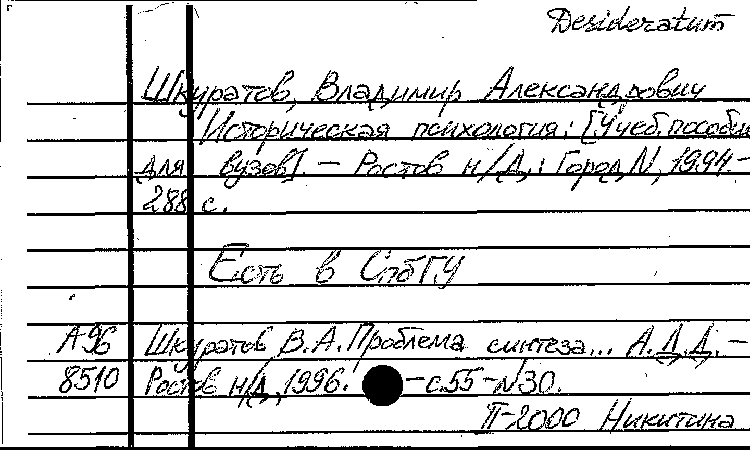 Desideratum
Шкуратов, Владимир Александрович
Историческая психология: [Учеб. пособие
для вузов]. – Ростов н/Д.: Город N, 1994. –
288 с.
Есть в СПбГУ
А96 Шкуратов В.А. Проблема синтеза... А.Д.Д. –
8510 Ростов н/Д, 1996. – с.55 – N30.
П-2000 Никитина